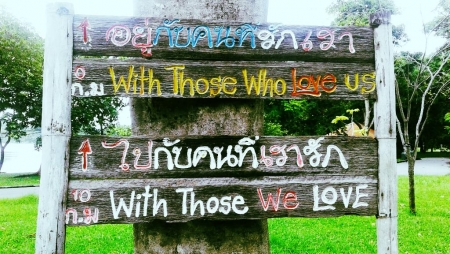 ↑ อยู่กับคนที่รักเรา
0 ก.ม With Those Who Love us
↑ ไปกับคนที่เรารัก
10 ก.ม With Those We LOVE